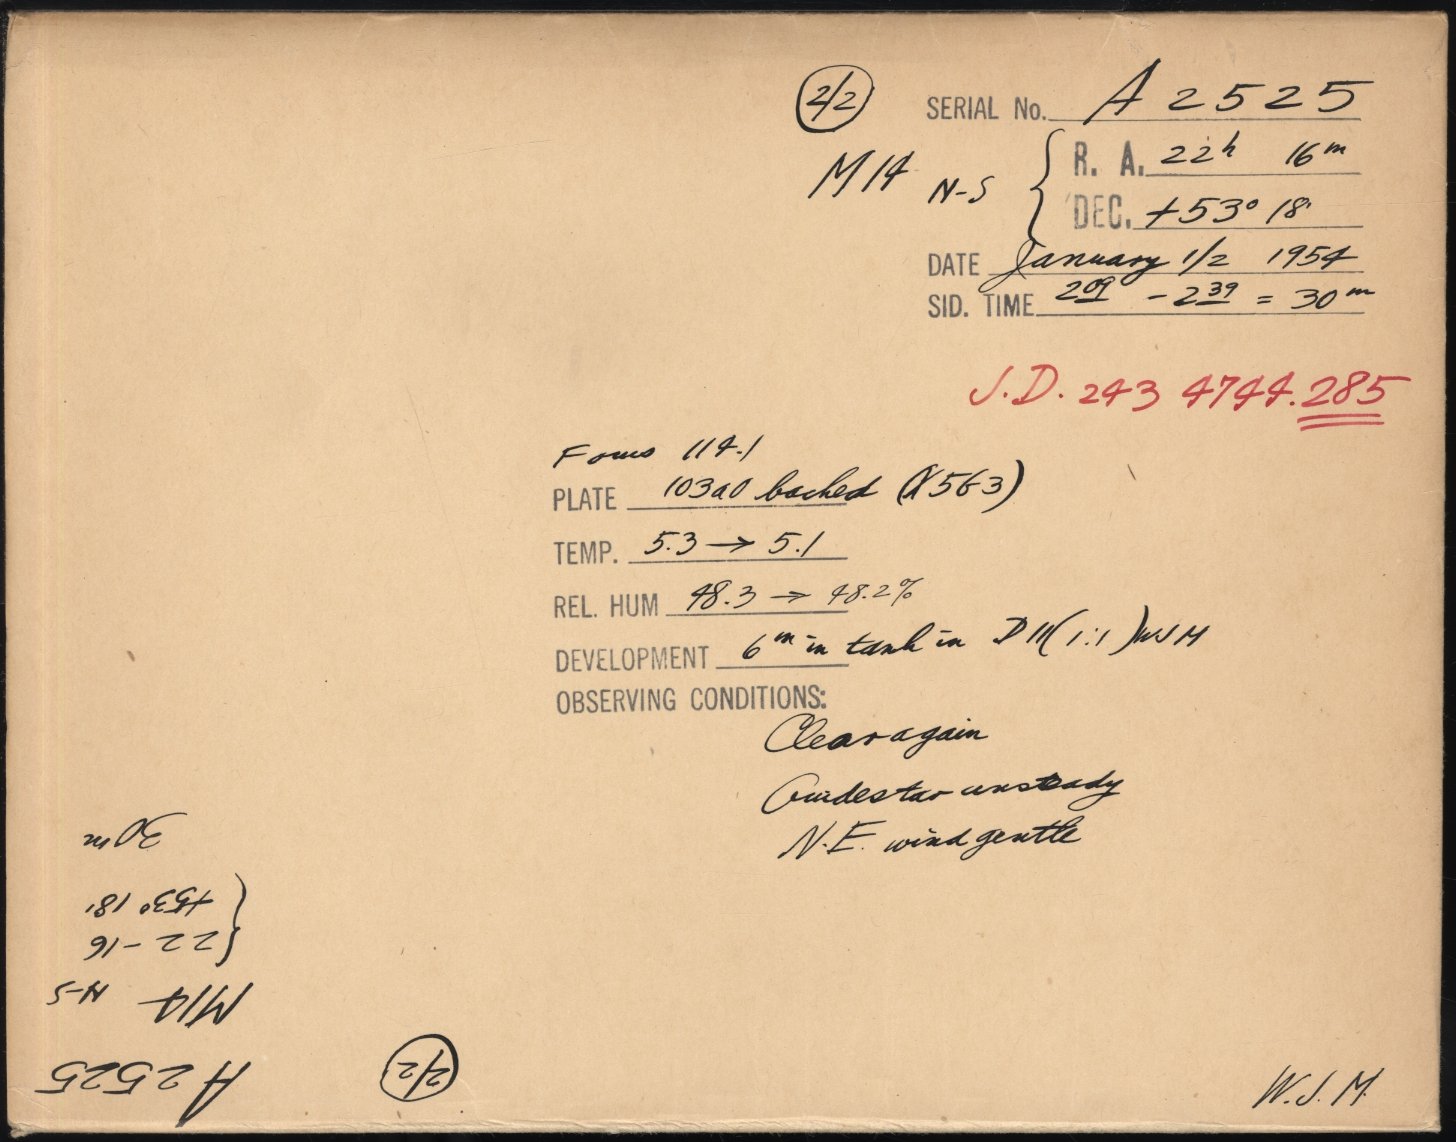 2/2
SERIAL No. A2525
M14 N-S { R. A. 22h 16m
DEC. +53° 18'
DATE January 1/2 1954
SID. TIME 2 09 - 2 39 = 30 m
J.D. 243 4744.285
Focus 114.1
PLATE 103a0 backed (X563)
TEMP. 5.3 → 5.1
REL. HUM 48.3 → 48.2%
DEVELOPMENT 6m in tank in D11 (1:1) WJM
OBSERVING CONDITIONS:
Clear again
Guidestar unsteady
N.E. wind gentle
W.J.M.
A2525 2/2
M14 N-S
{ 22-16
+53° 18'
30m